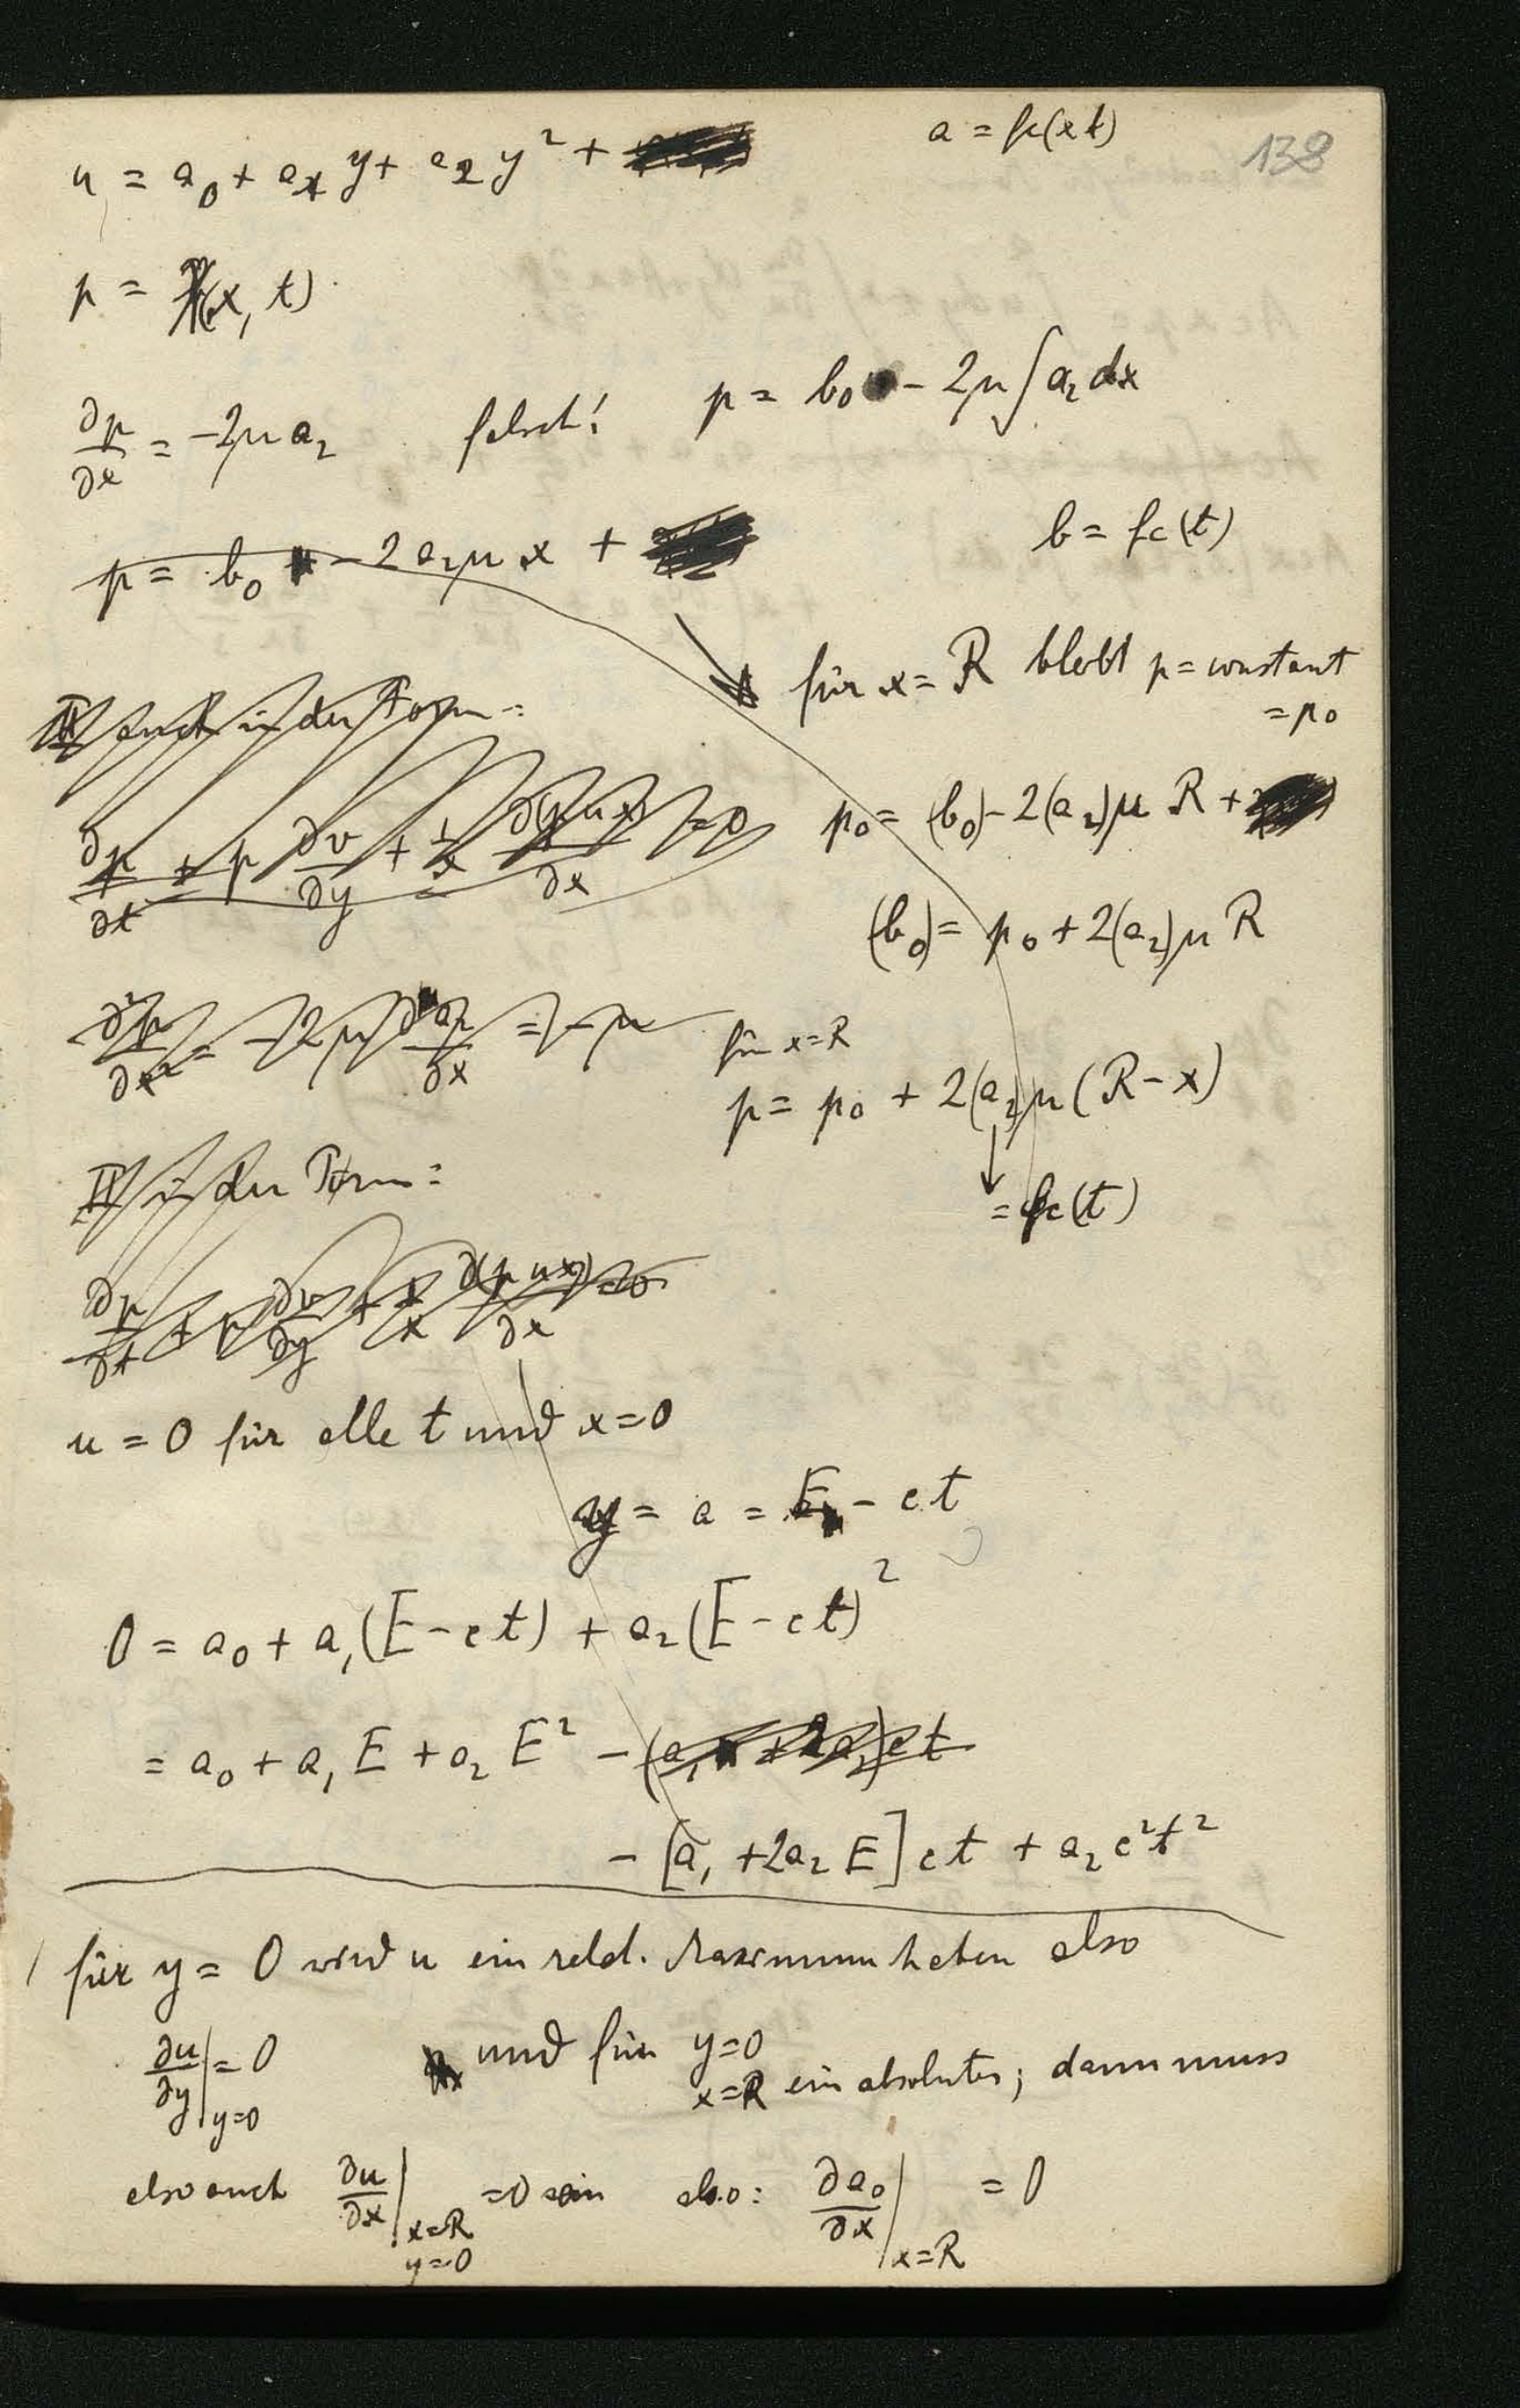 138
a = fc(xt)
u = a₀ + a₁ y + a₂ y² +
p = (x, t)
∂p/∂x = -2μ a₂ falsch! p = b₀ - 2μ ∫ a₂ dx
b = fc(t)
p = b₀ - 2a₂μ x +
für x = R bleibt p = constant
= p₀
IV auch in der Form:
∂p/∂t + p ∂v/∂y + 1/x ∂(p u x)/∂x = 0
p₀ = (b₀) - 2(a₂)μ R +
(b₀) = p₀ + 2(a₂)μ R
∂²p/∂x² = -2μ ∂a₂/∂x = -μ
für x = R
p = p₀ + 2(a₂)μ (R - x)
= fc(t)
IV in der Form:
∂p/∂t + p ∂v/∂y + 1/x ∂(p u x)/∂x = 0
u = 0 für alle t und x = 0
y = a = E - ct
0 = a₀ + a₁(E - ct) + a₂(E - ct)²
= a₀ + a₁ E + a₂ E² - (a₁ + 2a₂)ct
- [a₁ + 2a₂ E] ct + a₂ c²t²
für y = 0 wird u ein relat. Maximum haben also
∂u/∂y|y=0 = 0 und für y=0 x=R ein absolutes; dann muss
also auch ∂u/∂x|x=R y=0 = 0 sein also: ∂a₀/∂x|x=R = 0